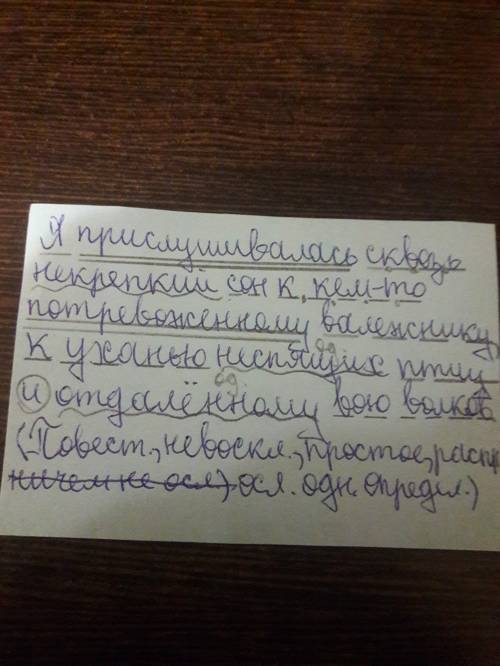 Я прислушивалась сквозь
некрепкий сон к кем-то
потревоженному валежнику,
к уханью неспящих птиц
и отдалённому вою волков
(Повест., невоскл., простое, распр
ничем не осл.) осл. одн. определ.)